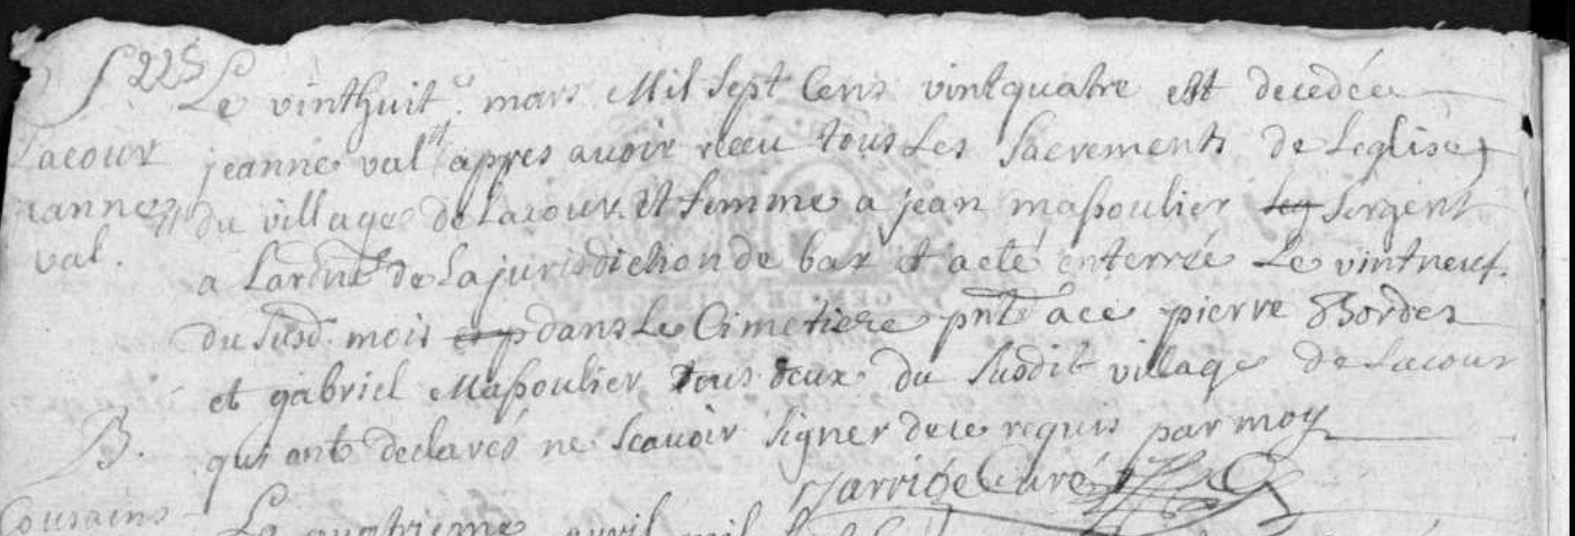 S 225 Le vinthuit.e mars Mil Sept Cens vintquatre est decedée
Lacour jeanne val apres avoir receu tous Les Sacrements de Leglise
du village de Lacour et femme a jean massoulier Sergent
val. a de la jurisdiction de bar et a eté enterrée Le vintneuf.
du susd. mois dans Le Cimetiere pnt a ce pierre Bordes
et gabriel Massoulier tous deux du Susdit village de Lacour
B. qui ont declarés ne Scauoir signer de ce requis par moy
Jarrige Curé
Cousains Le quatrieme avril mil